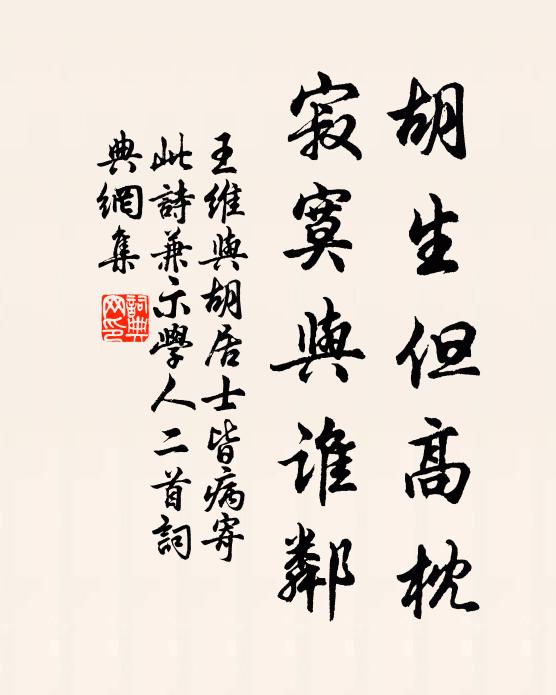 胡生但高枕
寂寞與誰鄰
王維與胡居士皆病寄
此詩兼示學人二首詞
典網集
詞典
网印